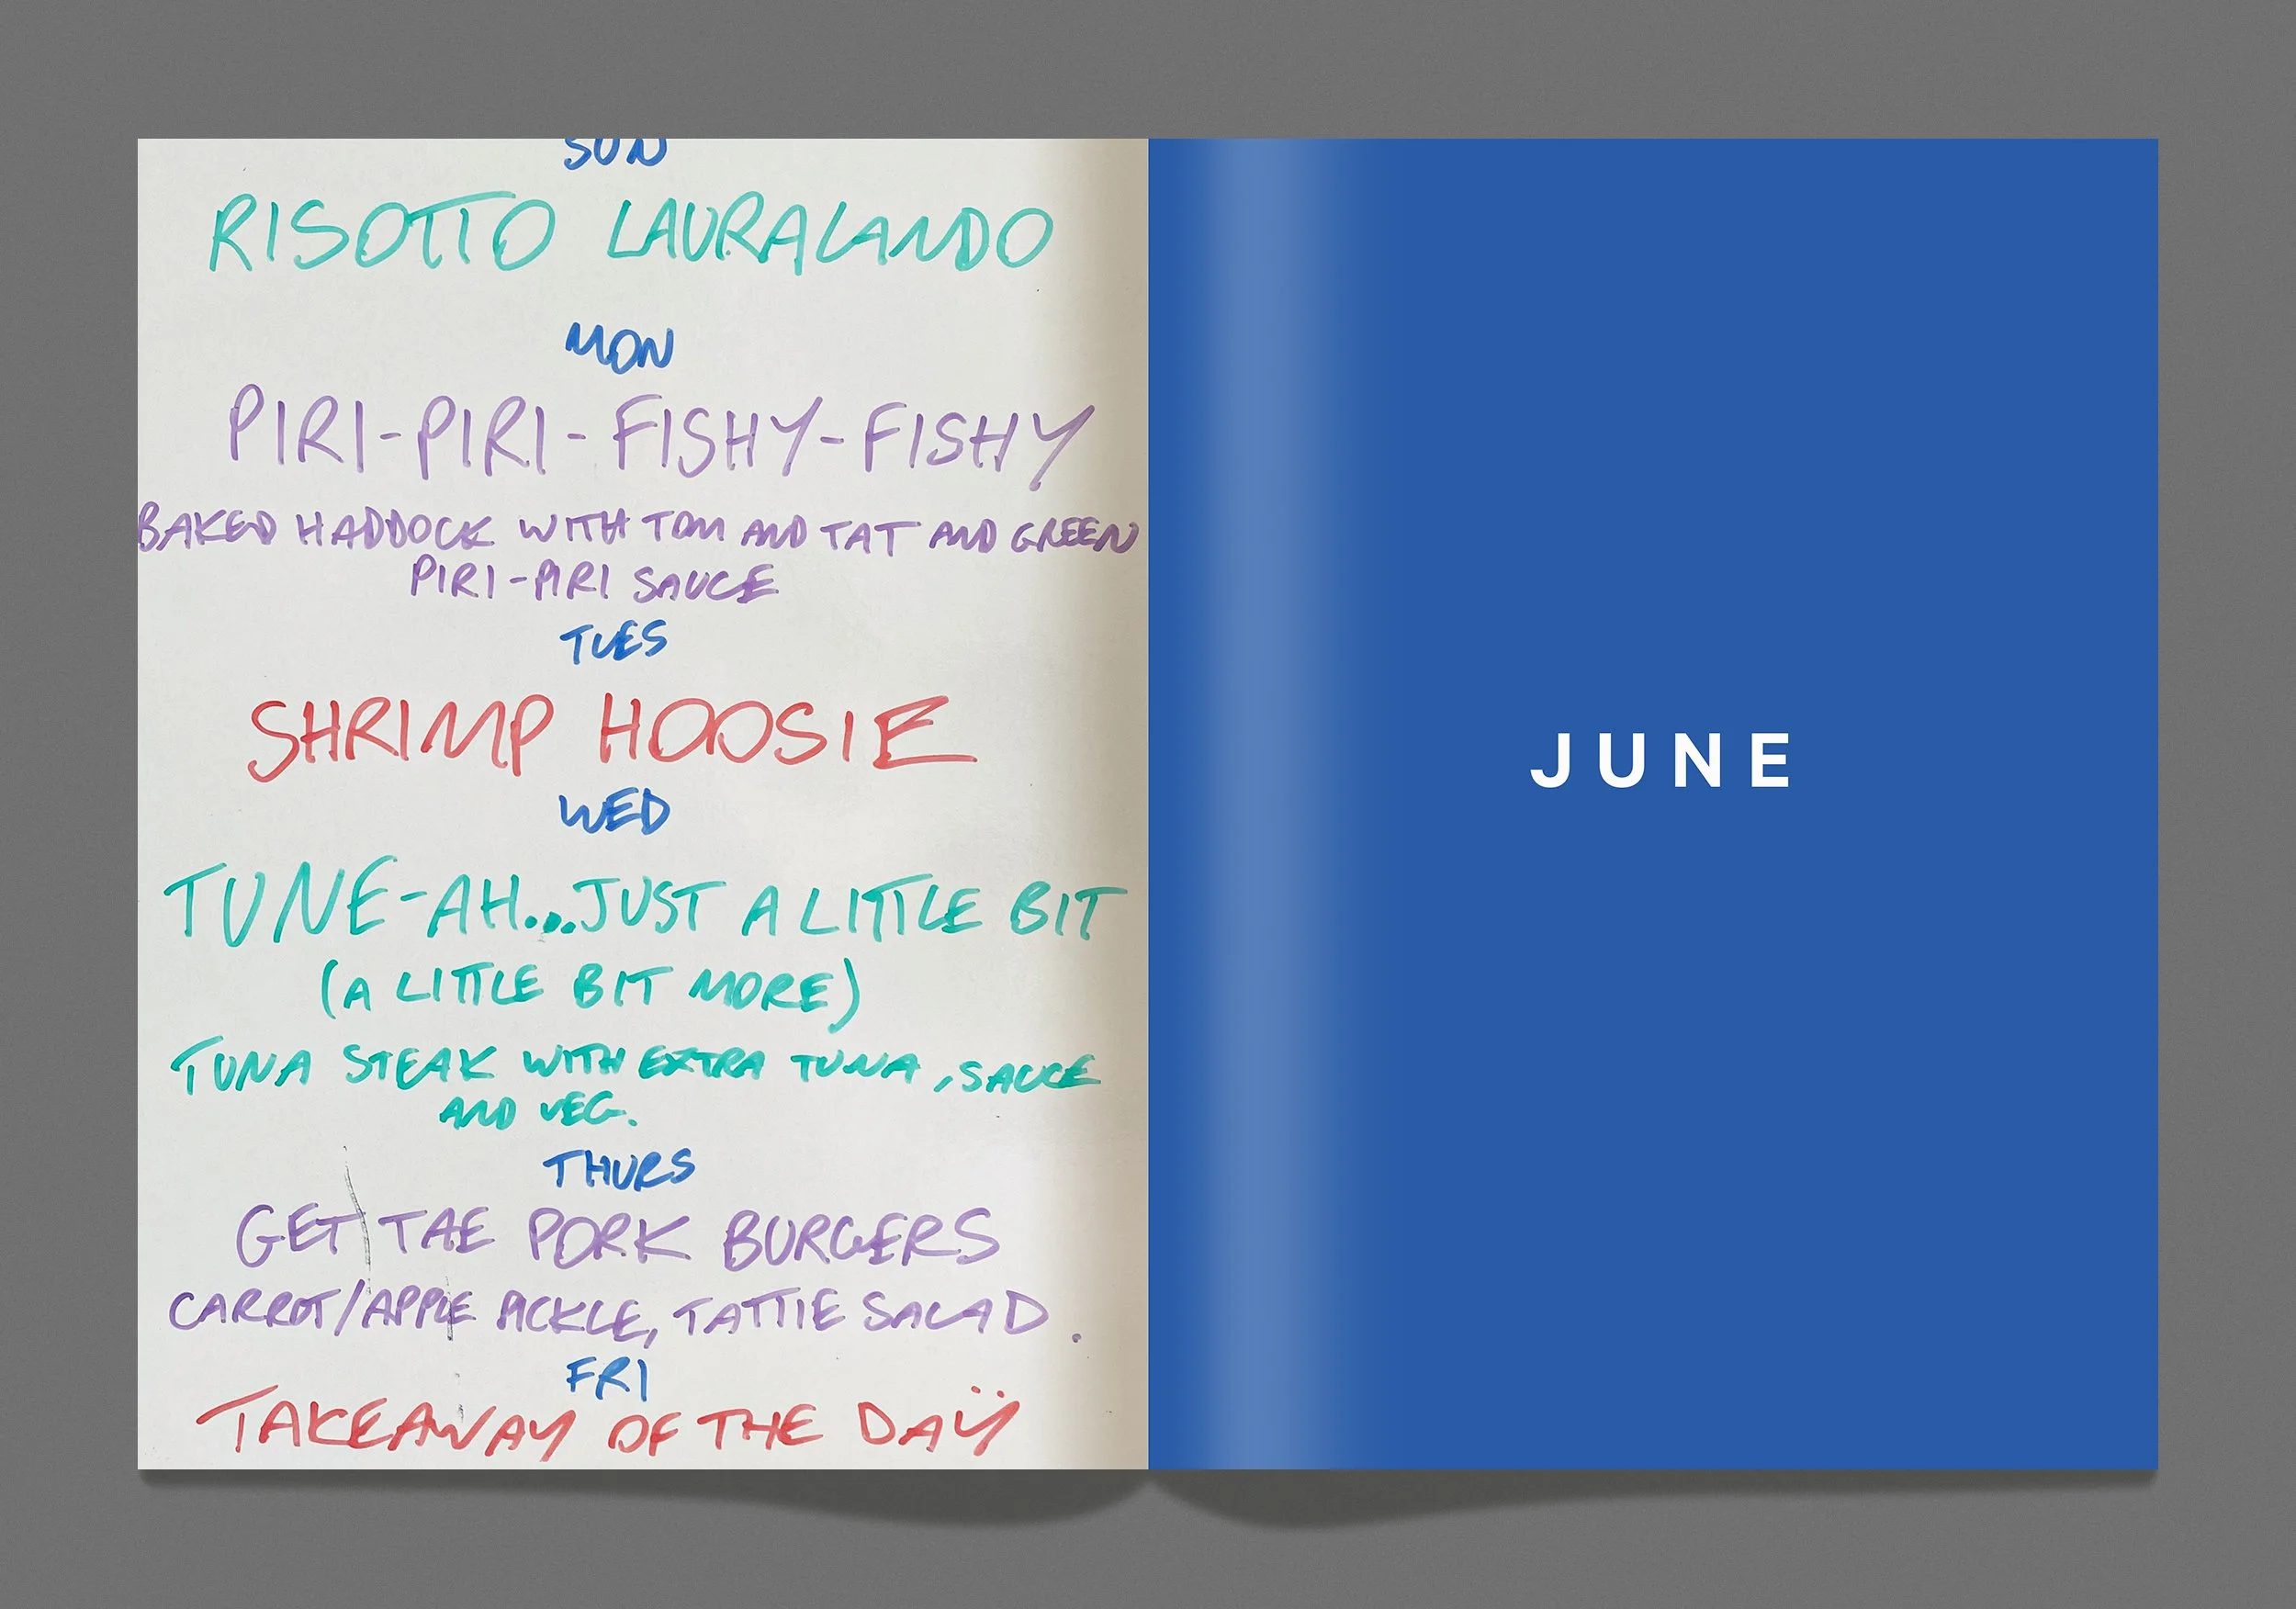 SUN
RISOTTO LAURALANDO
MON
PIRI-PIRI-FISHY-FISHY
BAKED HADDOCK WITH TOM AND TAT AND GREEN
PIRI-PIRI SAUCE
TUES
SHRIMP HOOSIE
WED
TUNE-AH...JUST A LITTLE BIT
(A LITTLE BIT MORE)
TUNA STEAK WITH EXTRA TUNA, SAUCE
AND VEG.
THURS
GET TAE PORK BURGERS
CARROT/APPLE PICKLE, TATTIE SALAD.
FRI
TAKEAWAY OF THE DAŸ
JUNE